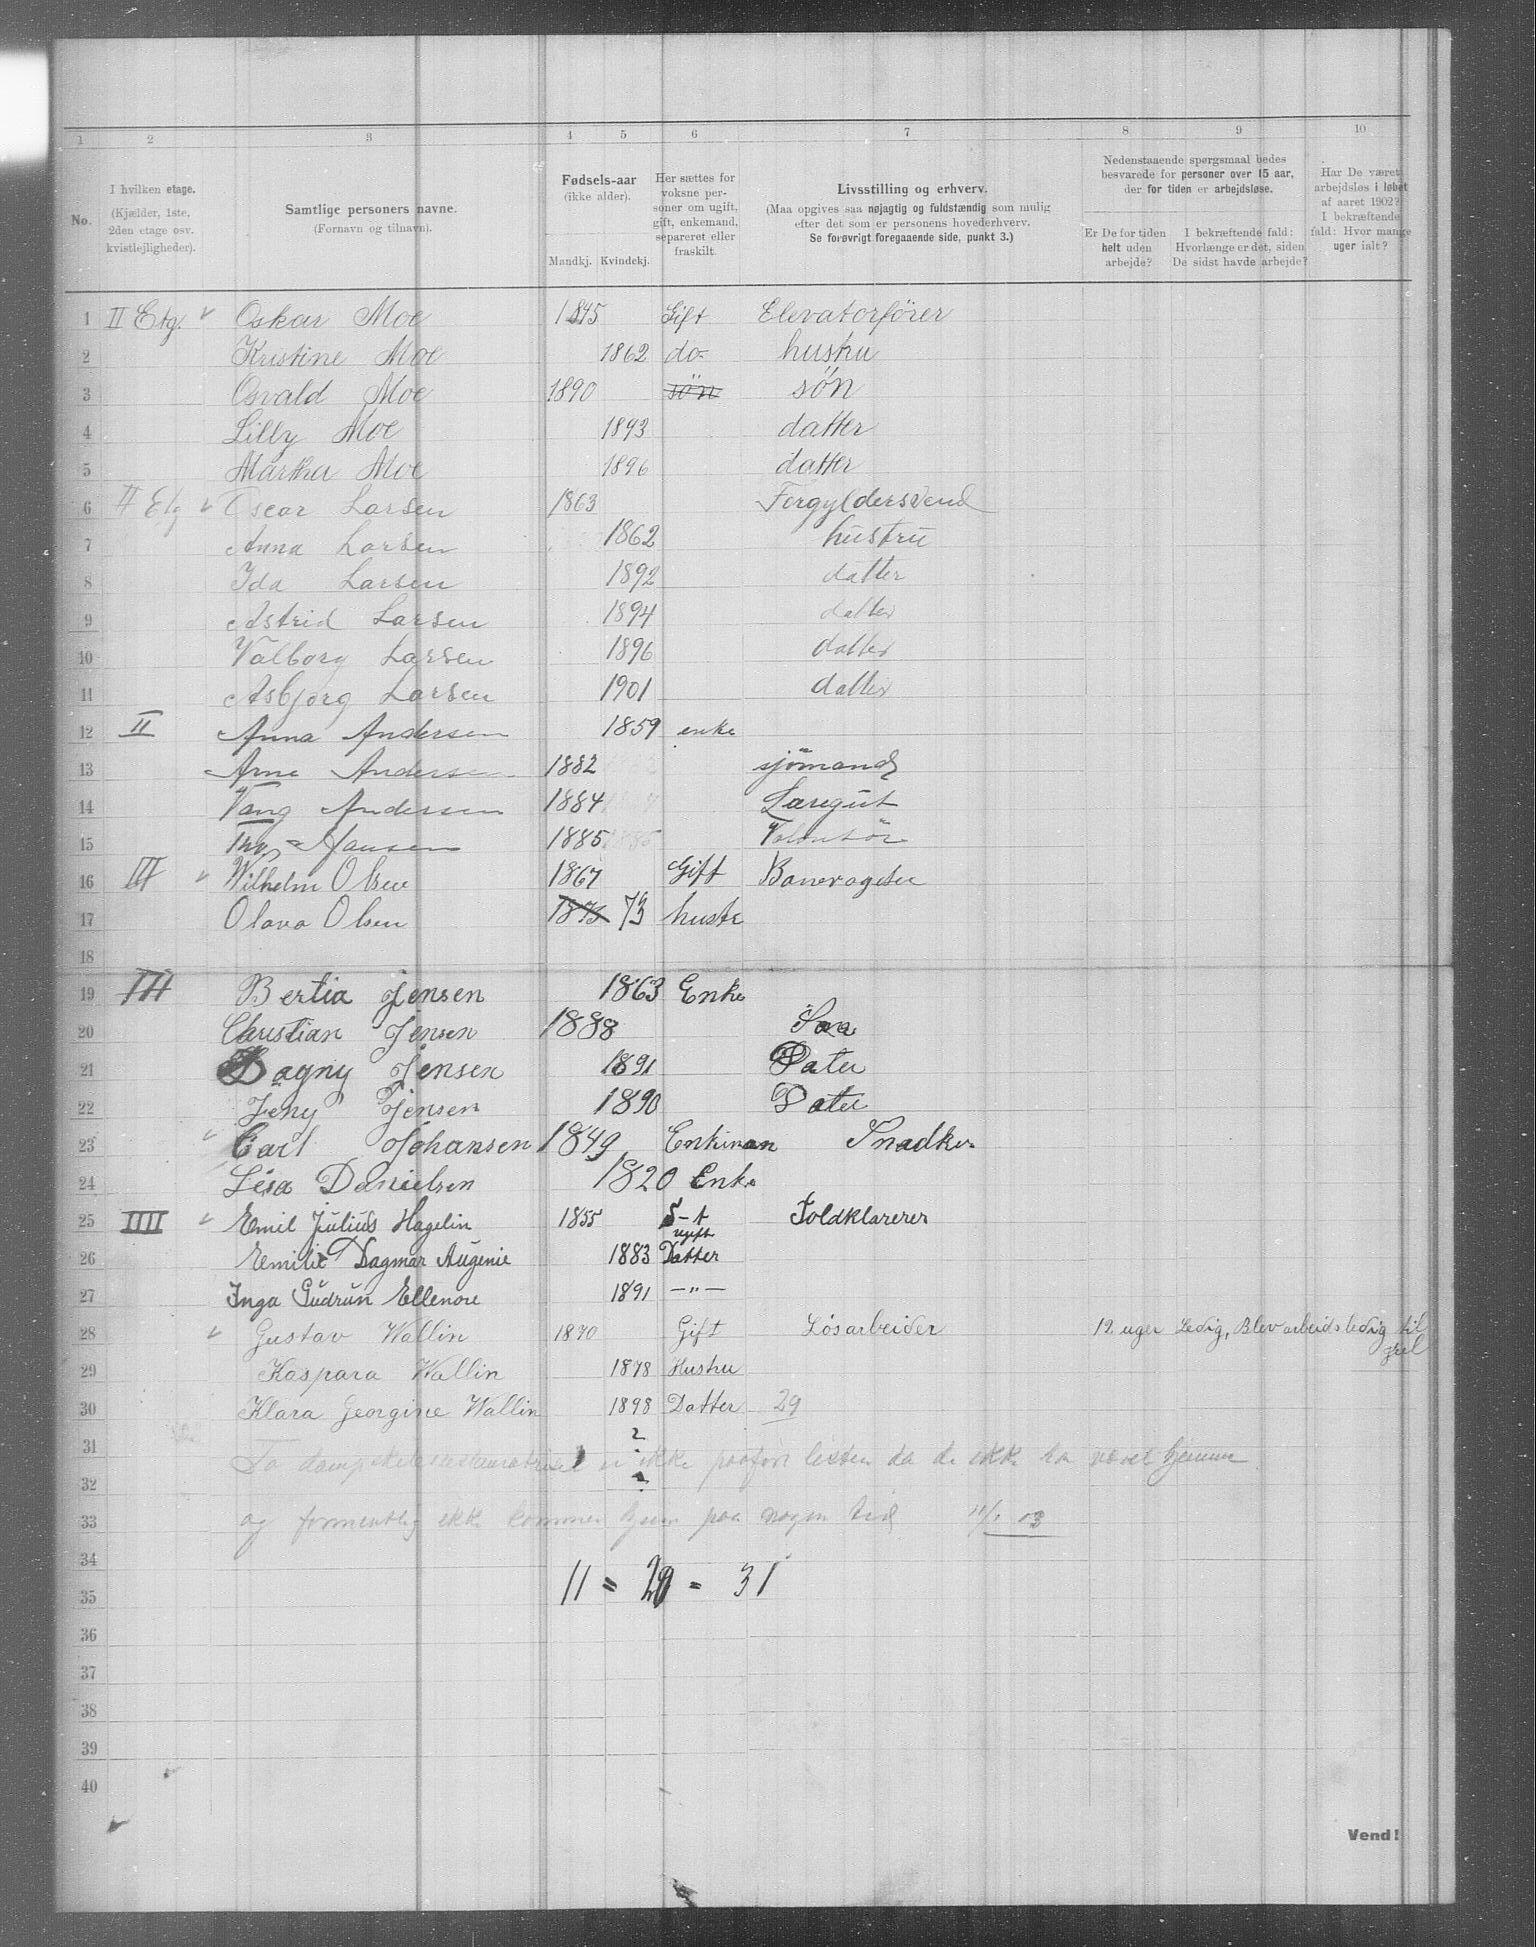 1 2 3 4 5 6 7 8 9 10
No.
I hvilken etage.
(Kjælder, 1ste,
2den etage osv.
kvistlejligheder).
Samtlige personers navne.
(Fornavn og tilnavn).
Fødsels-aar
(ikke alder).
Mandkj. Kvindekj.
Her sættes for
voksne per-
soner om ugift,
gift, enkemand,
separeret eller
fraskilt.
Livsstilling og erhverv.
(Maa opgives saa nøjagtig og fuldstændig som mulig
efter det som er personens hovederhverv.
Se forøvrigt foregaaende side, punkt 3.)
Nedenstaaende spørgsmaal bedes
besvarede for personer over 15 aar,
der for tiden er arbejdsløse.
Er De for tiden
helt uden
arbejde?
I bekræftende fald:
Hvorlænge er det, siden
De sidst havde arbejde?
Har De været
arbejdsløs i løbet
af aaret 1902?
I bekræftende
fald: Hvor mange
uger ialt?
1 II Etg. Oskar Moe 1845 Gift Elevatorfører
2 Kristine Moe 1862 do- hustru
3 Osvald Moe 1890 søn søn
4 Lilly Moe 1893 datter
5 Martha Moe 1896 datter
6 II Etg Oscar Larsen 1863 Forgyldersvend
7 Anna Larsen 1862 hustru
8 Ida Larsen 1892 datter
9 Astrid Larsen 1894 datter
10 Valborg Larsen 1896 datter
11 Asbjorg Larsen 1901 datter
12 II Anna Andersen 1859 enke
13 Arne Andersen 1882 sjömand
14 Vang Andersen 1884 Læregut
15 Hansen 1885 Volontör
16 III Wilhelm Olsen 1867 Gift Banevogter
17 Olava Olsen 1873 73 hustr
18
19 III Bertia Jensen 1863 Enke
20 Christian Jensen 1888
21 Dagny Jensen 1891 Dater
22 Jeny Jensen 1890 Dater
23 Carl Johansen 1849 Enkiman Snedker
24 Lisa Danielsen 1820 Enke
25 IIII Emil Julius Hagelin 1855 S-t Toldklarerer
26 Emilie Dagmar Augenie 1883 ugift Datter
27 Inga Gudrun Ellenore 1891 —"—
28 Gustav Wallin 1870 Gift Løsarbeider 12 uger Ledig, Blev arbeidsledig til
jul
29 Kaspara Wallin 1878 Hustru
30 Klara Georgine Wallin 1898 Datter 29
31 2
To ikke paaført listen da de ikke har været hjemme
32
33 og formentlig ikke kommer hjem paa nogen tid 03
34
35 11 = 20 = 31
36
37
38
39
40
Vend!